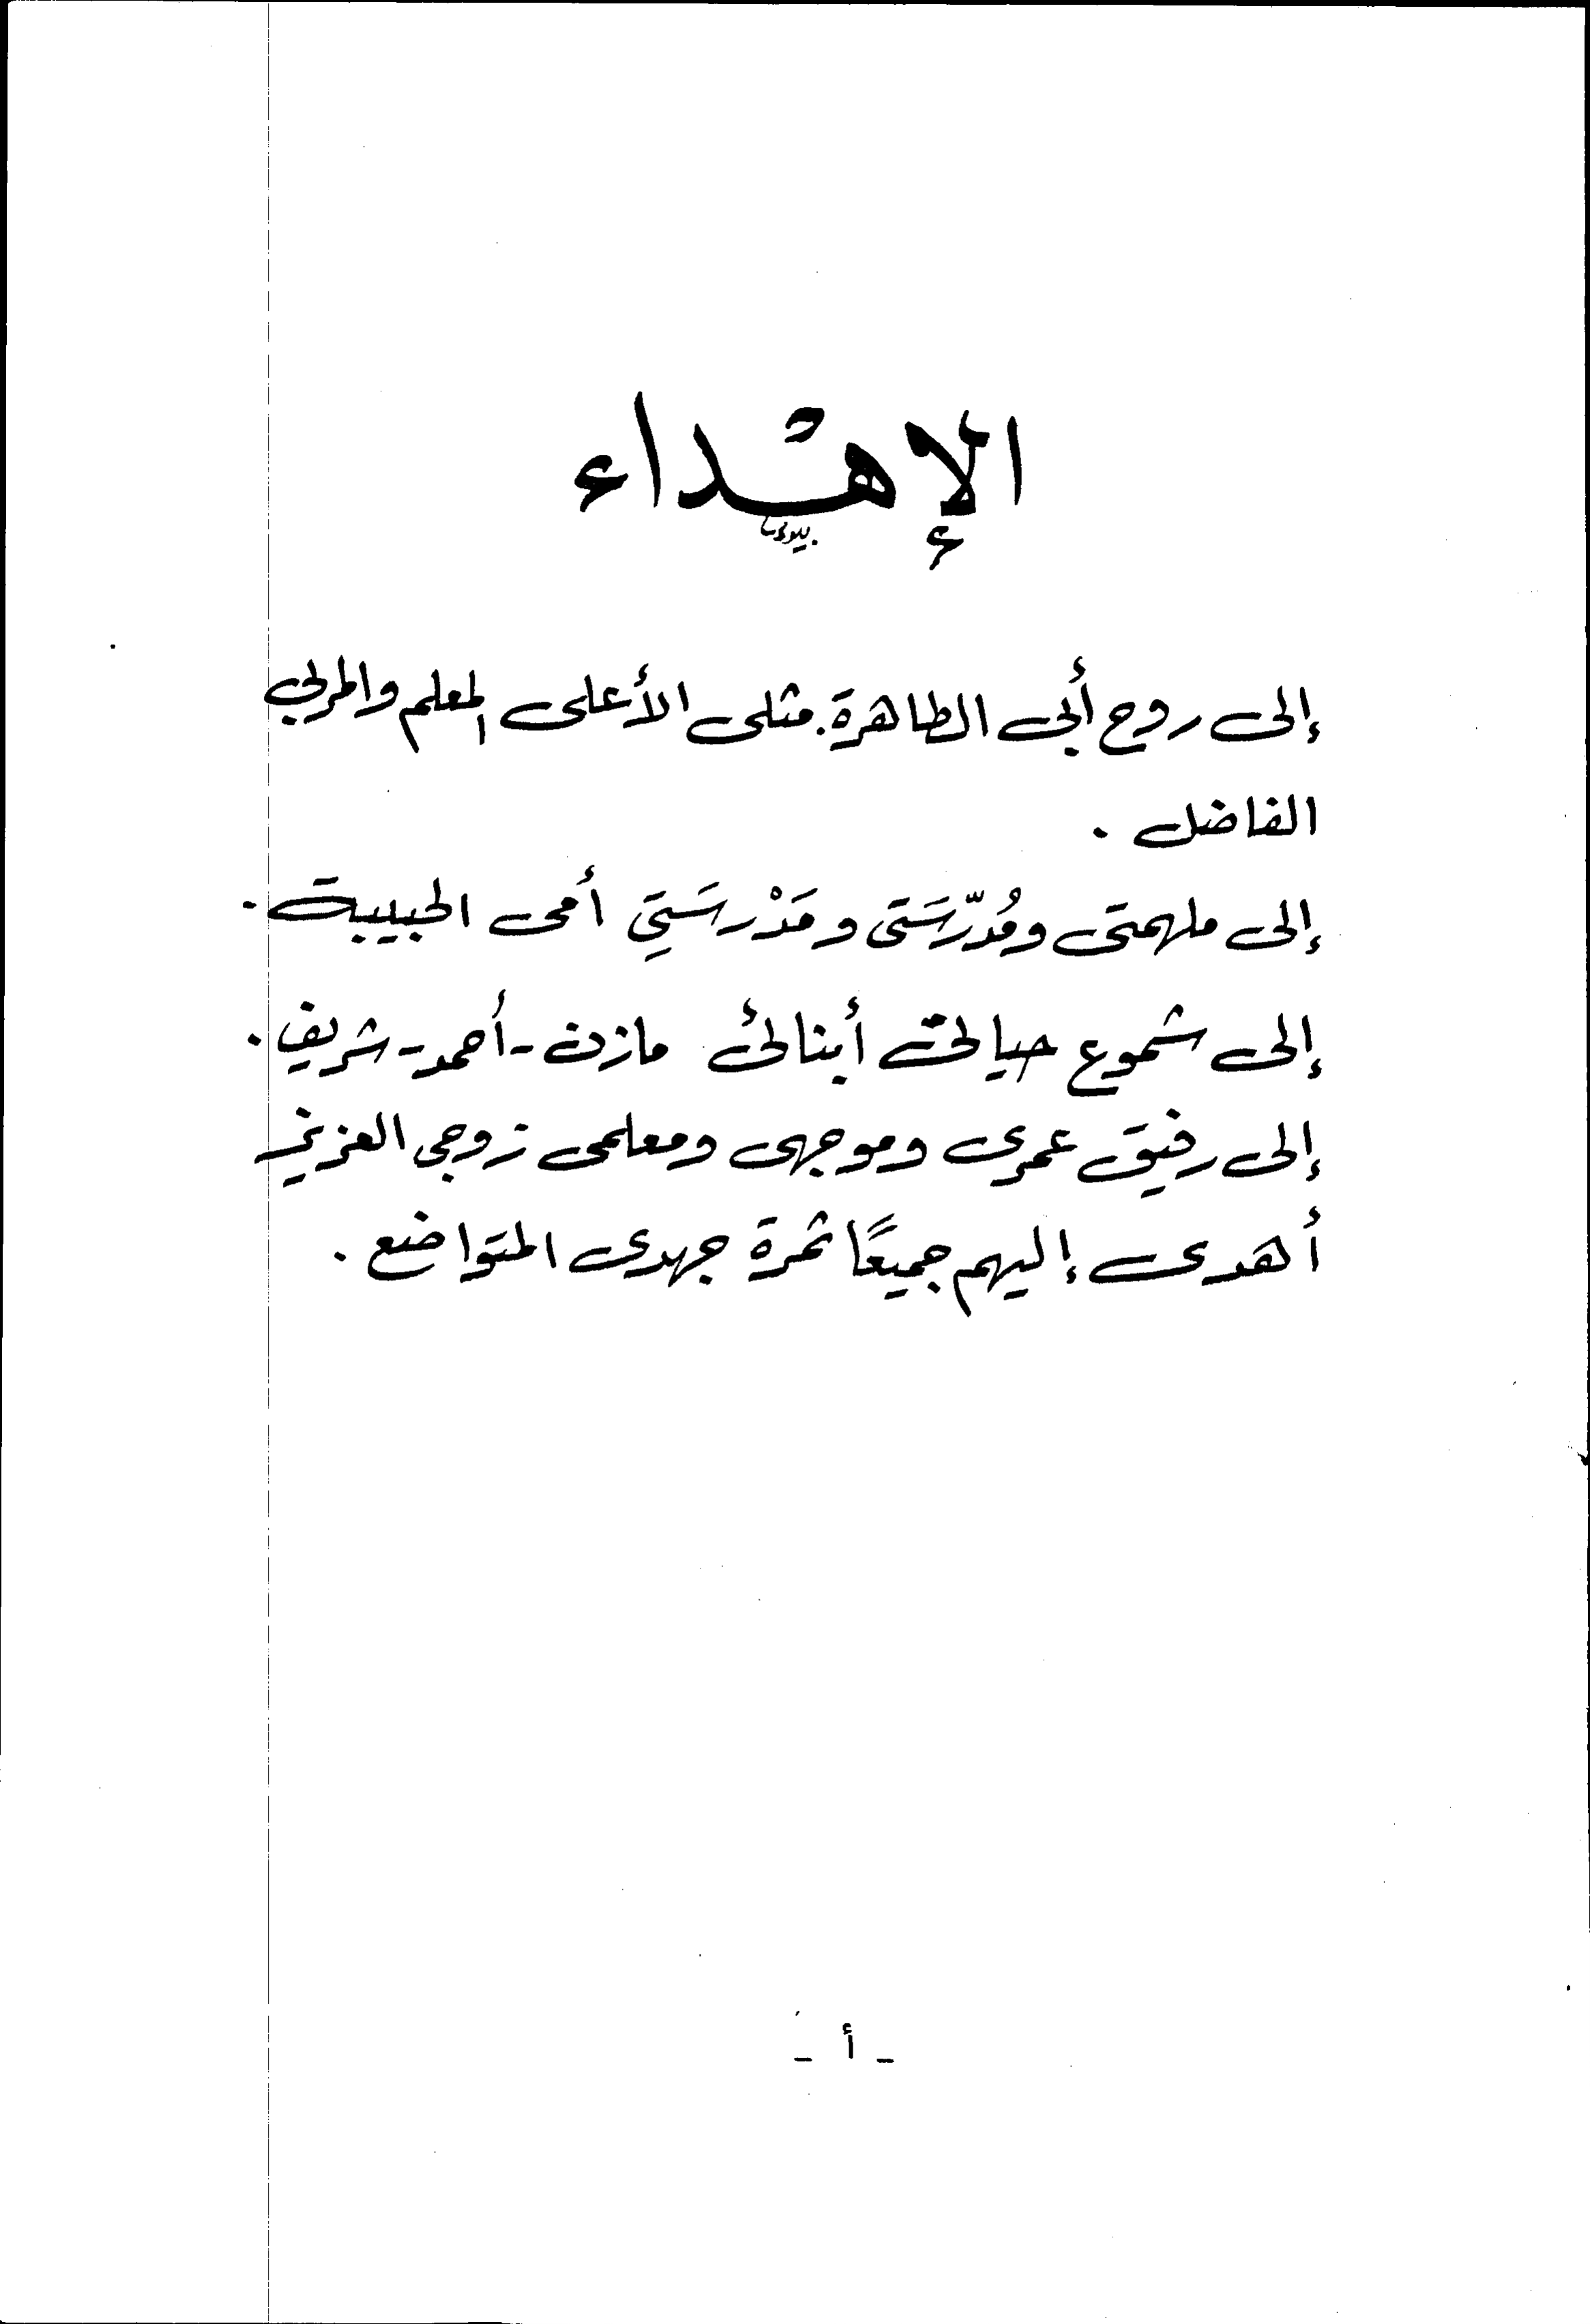 الإهداء
إلى روح أبى الطاهرة. مثلى الأعلى المعلم والمربي
الفاضل .
إلى ملهمتى ومُدرّسَتى ومَدْرسَتِي أمى الحبيبة .
إلى شموع حياتى أبنائى مازن - أحمد - شريف .
إلى رفيق عمرى وموجهى ومعلمى زوجى العزيز
أهدى إليهم جميعًا ثمرة جهدى المتواضع .
- أ -